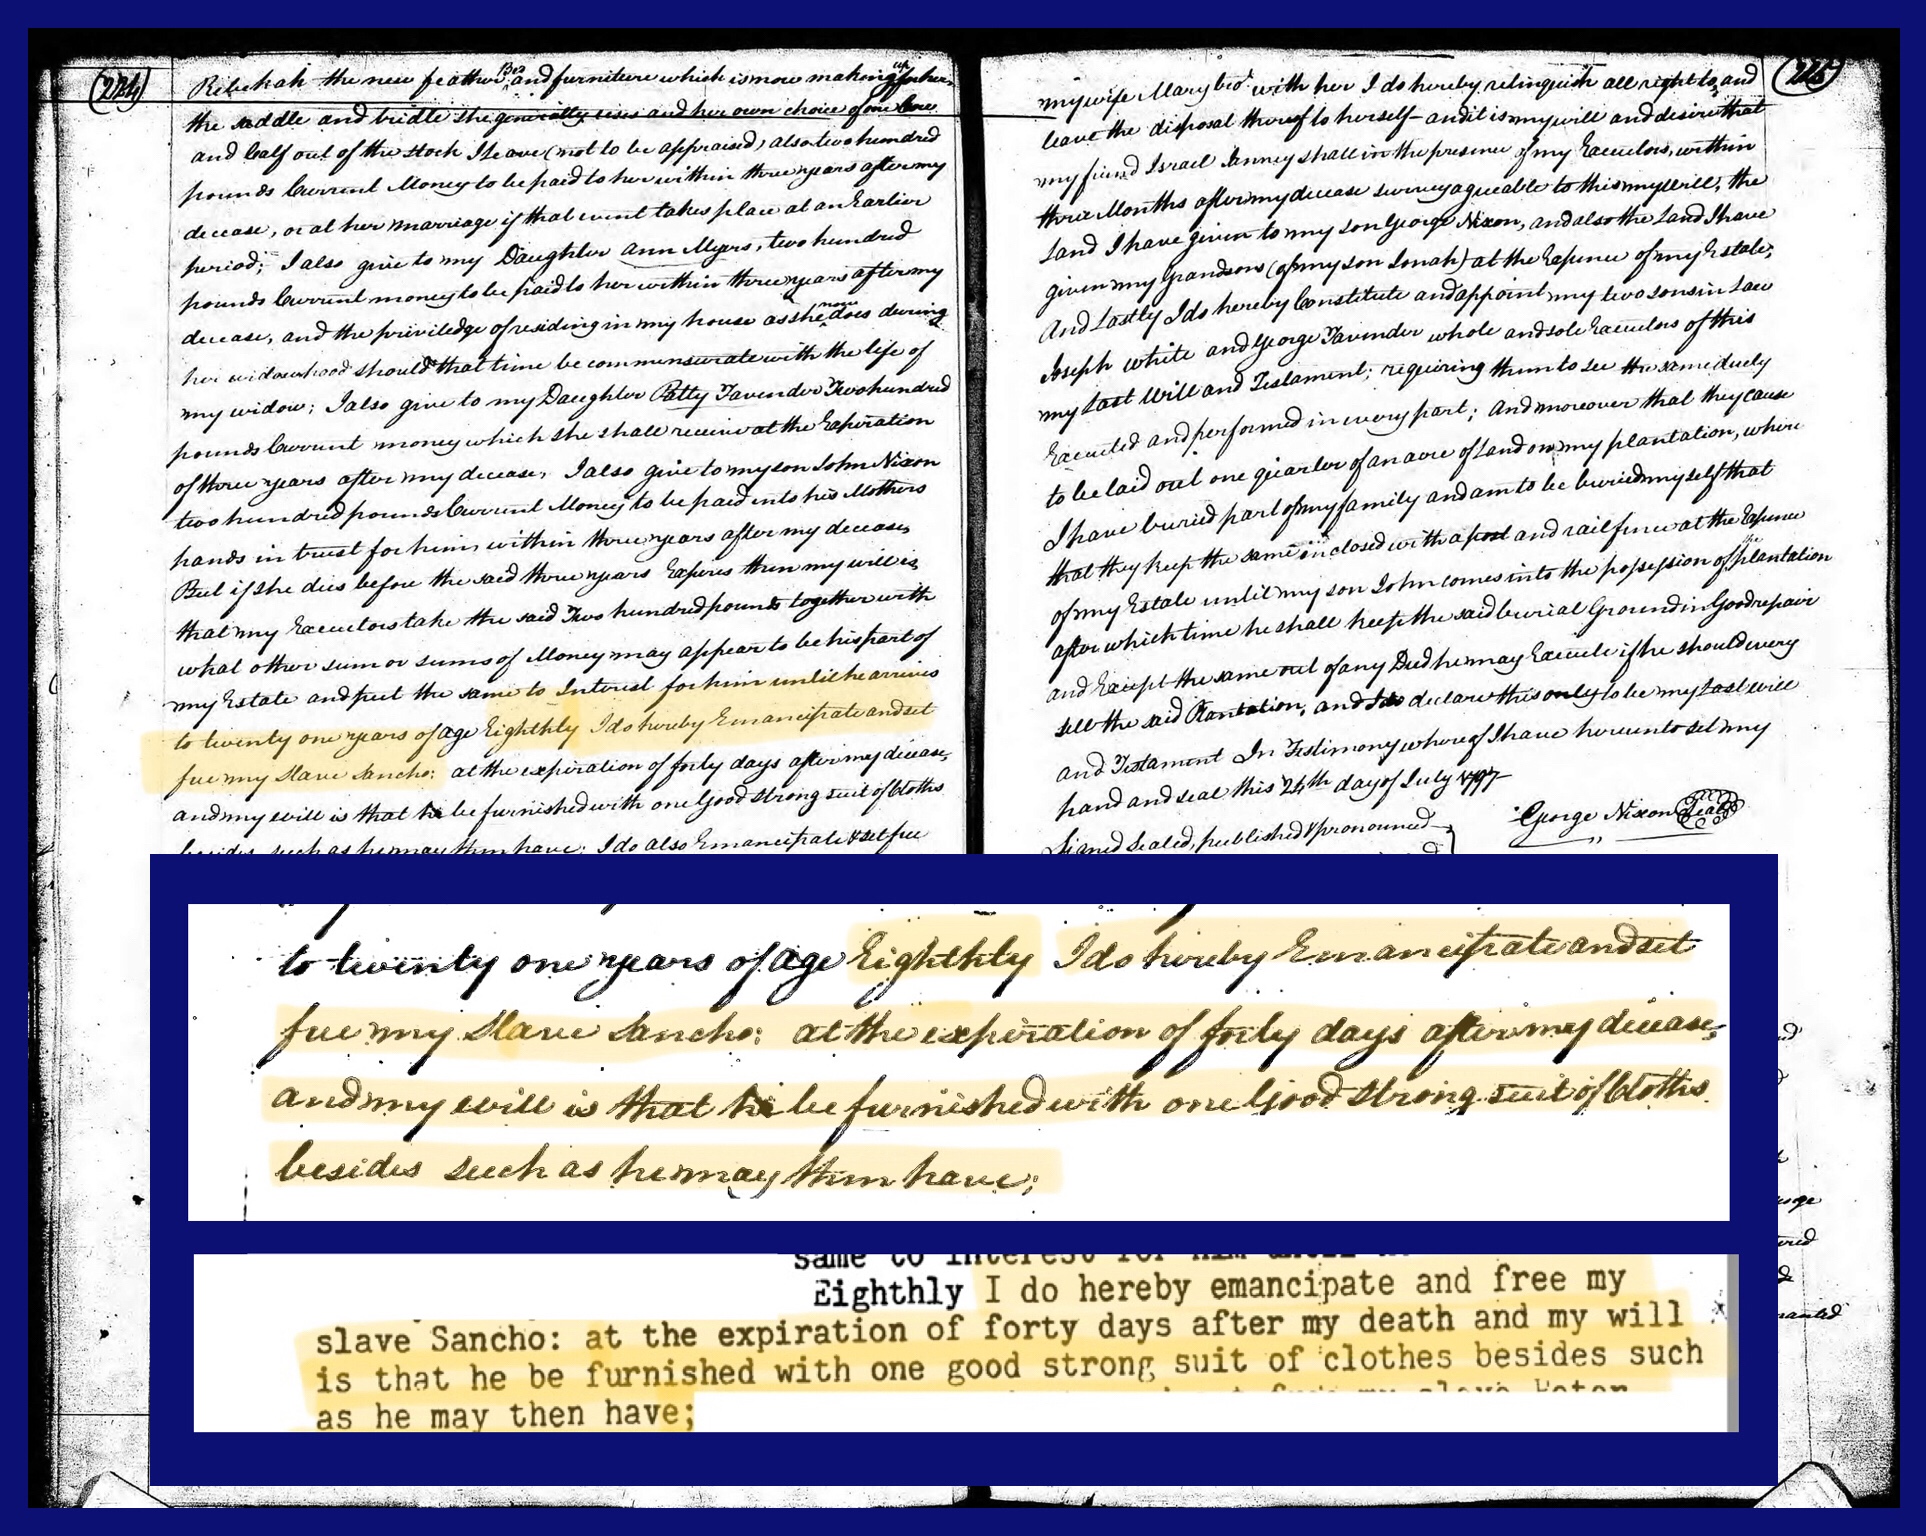 (224)
Rebekah the new feather Bed and furniture which is now making up for her
the saddle and bridle she generally uses and her own choice of one Cow
and Calf out of the stock I leave (not to be appraised) also two hundred
pounds Current Money to be paid to her within three years after my
decease, or at her marriage if that event takes place at an Earlier
period; I also give to my Daughter Ann Myers, two hundred
pounds Current money to be paid to her within three years after my
decease, and the priviledge of residing in my house as she now does during
her widowhood should that time be commensurate with the life of
my widow; I also give to my Daughter Patty Tavender Two hundred
pounds Current money which she shall receive at the Expiration
of three years after my decease, I also give to my son John Nixon
two hundred pounds Current Money to be paid into his Mothers
hands in trust for him within three years after my decease,
But if she dies before the said three years Expires then my will is
that my Executors take the said Two hundred pounds together with
what other sum or sums of Money may appear to be his part of
my Estate and put the same to Interest for him until he arrives
to twenty one years of age Eighthly I do hereby Emancipate and set
free my Slave Sancho: at the expiration of forty days after my decease,
and my will is that he be furnished with one Good strong suit of Cloths
besides such as he may then have; I do also Emancipate & set free
(225)
my wife Mary bro't with her I do hereby relinquish all right to, and
leave the disposal thereof to herself - and it is my will and desire that
my friend Israel Janney shall in the presence of my Executors, within
three Months after my decease survey agreeable to this my will, the
Land I have given to my son George Nixon, and also the Land I have
given my grandsons (of my son Jonah) at the Expence of my Estate;
And Lastly I do hereby Constitute and appoint my two sons in Law
Joseph White and George Tavender whole and sole Executors of this
my Last Will and Testament; requiring them to see the same duely
Executed and performed in every part; And moreover that they cause
to be laid out one quarter of an acre of Land on my plantation, where
I have buried part of my family and am to be buried my self that
that they keep the same inclosed with a post and rail fence at the Expence
of my Estate until my son John comes into the possession of the plantation
after which time he shall keep the said burial Ground in Good repair
and Except the same out of any Deed he may Execute if he should every
sell the said Plantation, and I do declare this only to be my Last will
and Testament In Testimony whereof I have hereunto set my
hand and seal this 24th day of July 1797
George Nixon Seal
Signed Sealed, published & pronounced
to twenty one years of age Eighthly I do hereby Emancipate and set
free my Slave Sancho: at the expiration of forty days after my decease,
and my will is that he be furnished with one Good strong suit of Cloths
besides such as he may then have;
same to interest for him until
Eighthly I do hereby emancipate and free my
slave Sancho: at the expiration of forty days after my death and my will
is that he be furnished with one good strong suit of clothes besides such
as he may then have;